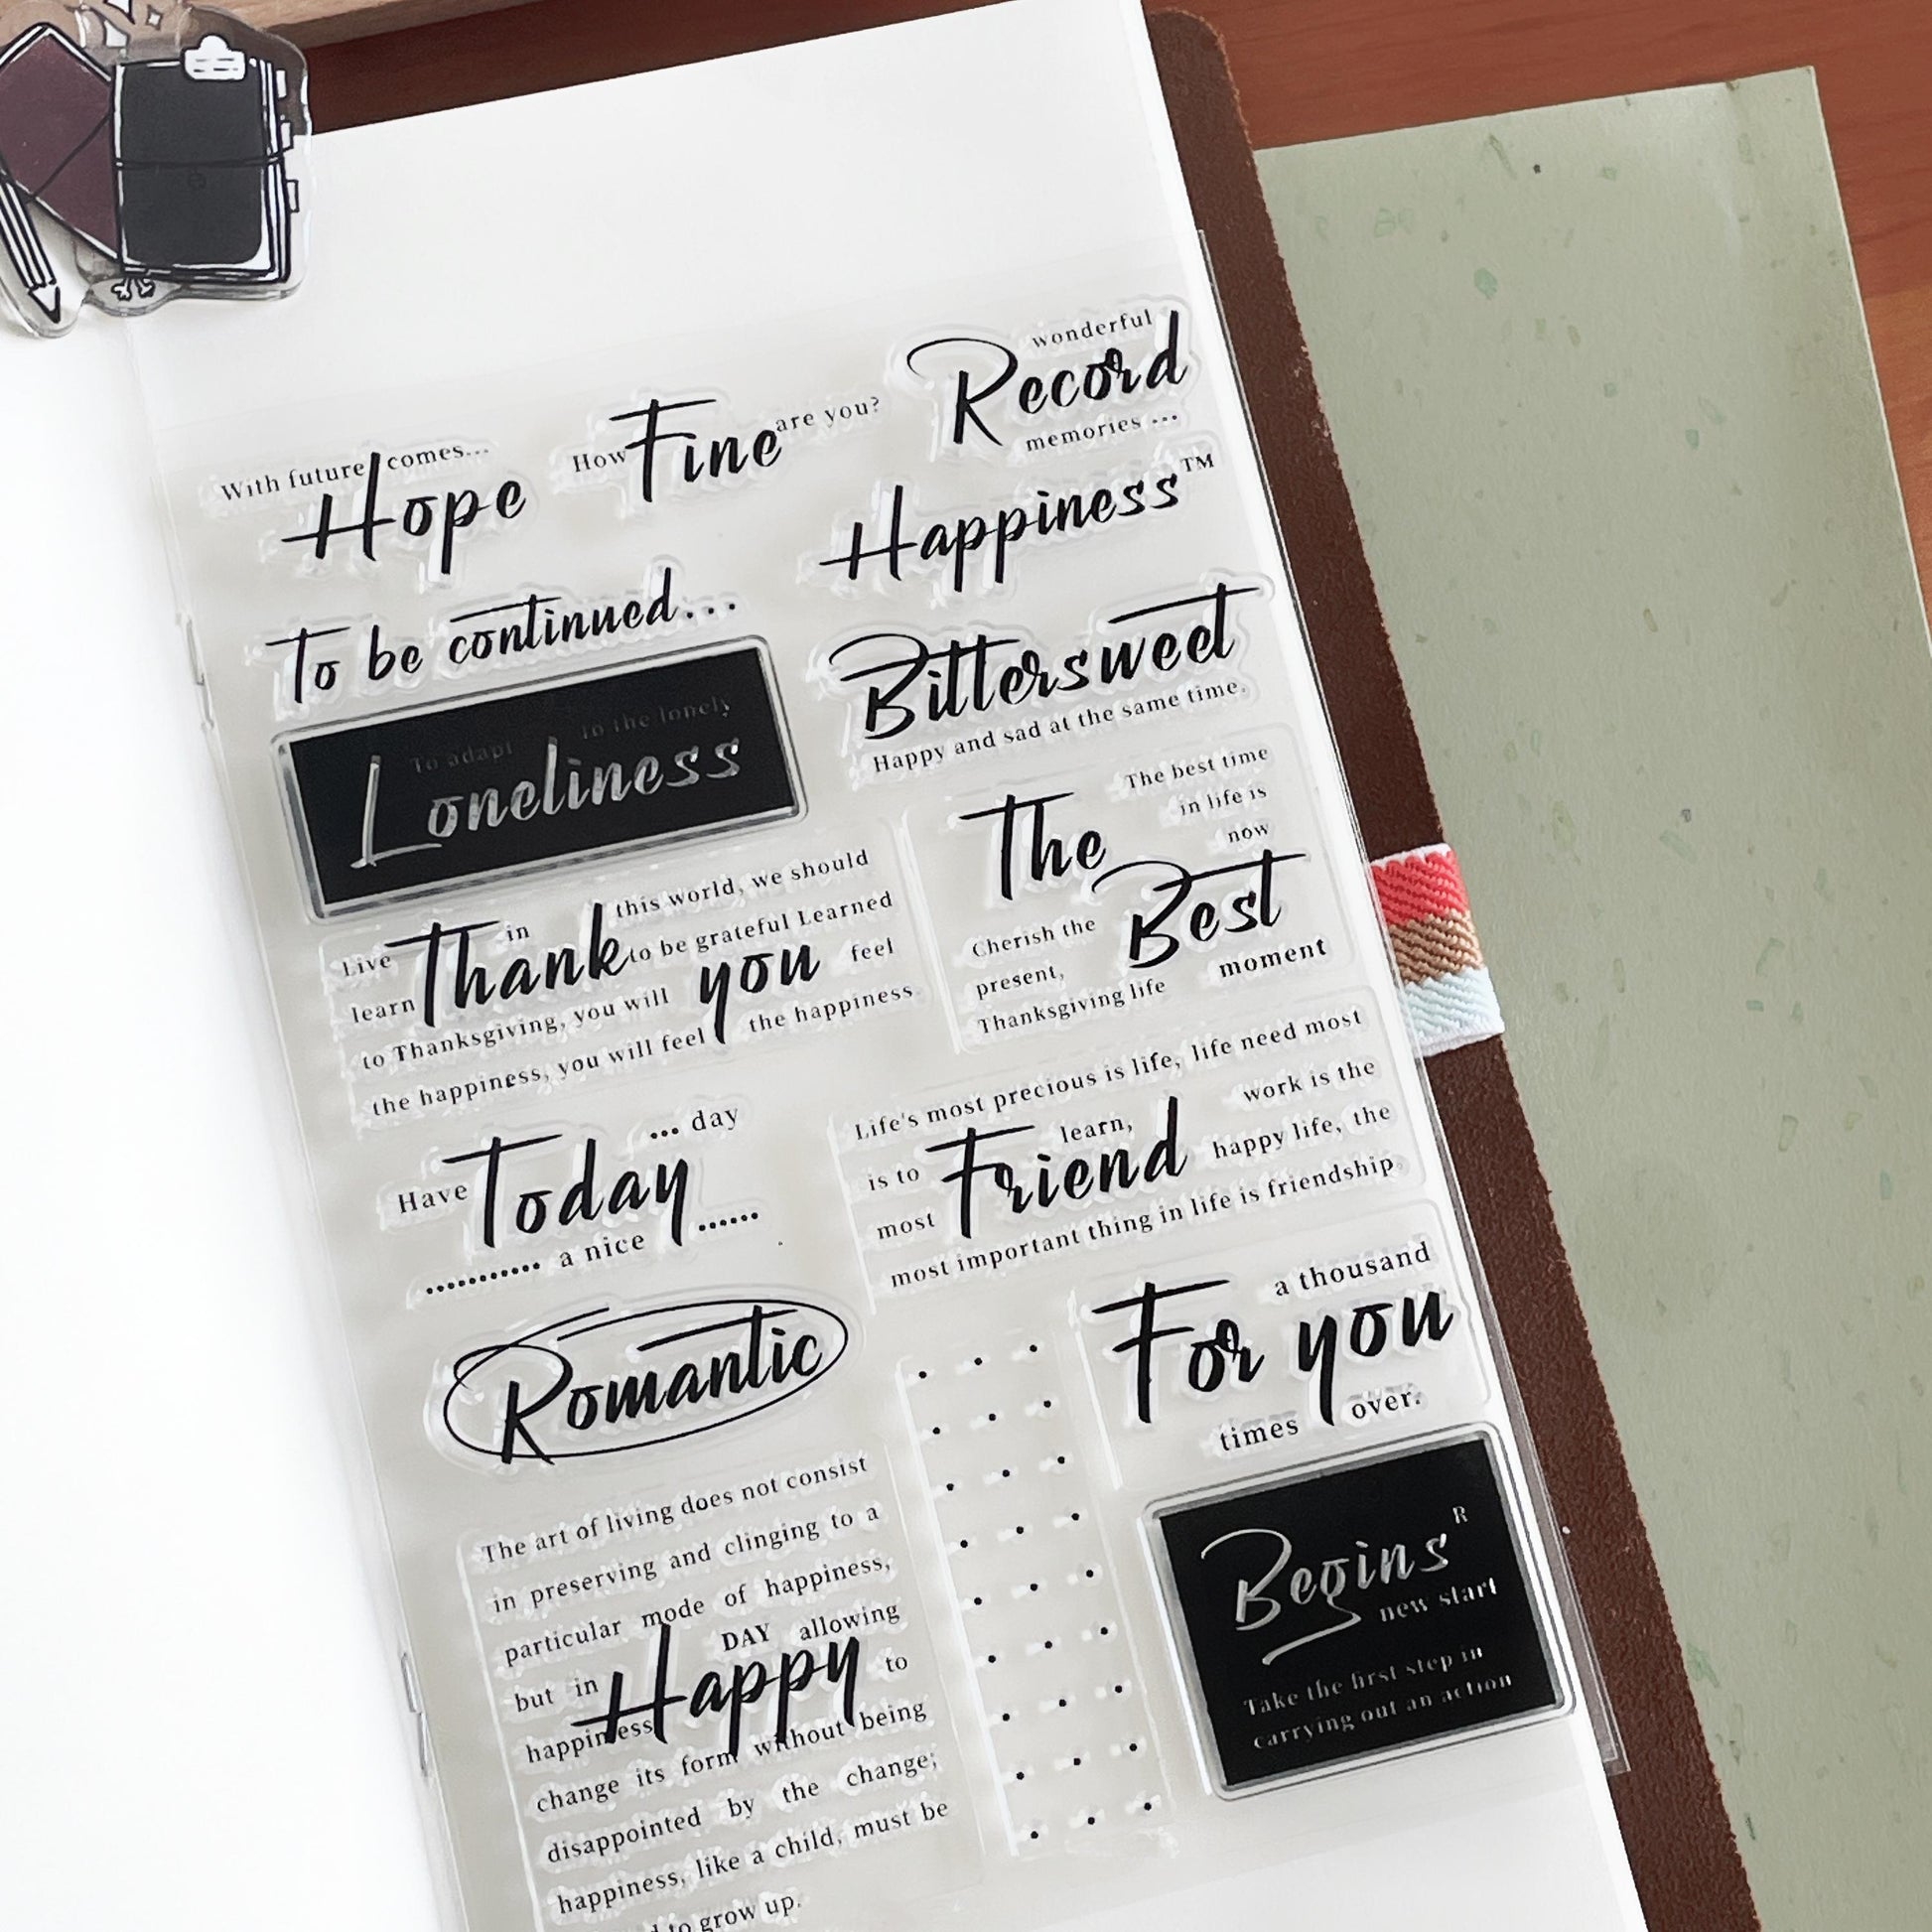 wonderful
Record
memories ...
With future comes...
Hope
How are you?
Fine
Happiness™
To be continued...
Bittersweet
Happy and sad at the same time.
To adapt to the lonely
Loneliness
The best time
in life is
now
The
Best
Cherish the
present,
moment
Thanksgiving life
Live in this world, we should
learn to be grateful Learned
Thank you
to Thanksgiving, you will feel
the happiness, you will feel the happiness
Life's most precious is life, life need most
is to learn, work is the
Friend
most happy life, the
most important thing in life is friendship
... day
Have
Today
............ a nice ......
a thousand
For you
times over.
Romantic
The art of living does not consist
in preserving and clinging to a
particular mode of happiness,
but in DAY allowing
Happy
happiness to
change its form without being
disappointed by the change;
happiness, like a child, must be
to grow up.
Begins R
new start
Take the first step in
carrying out an action